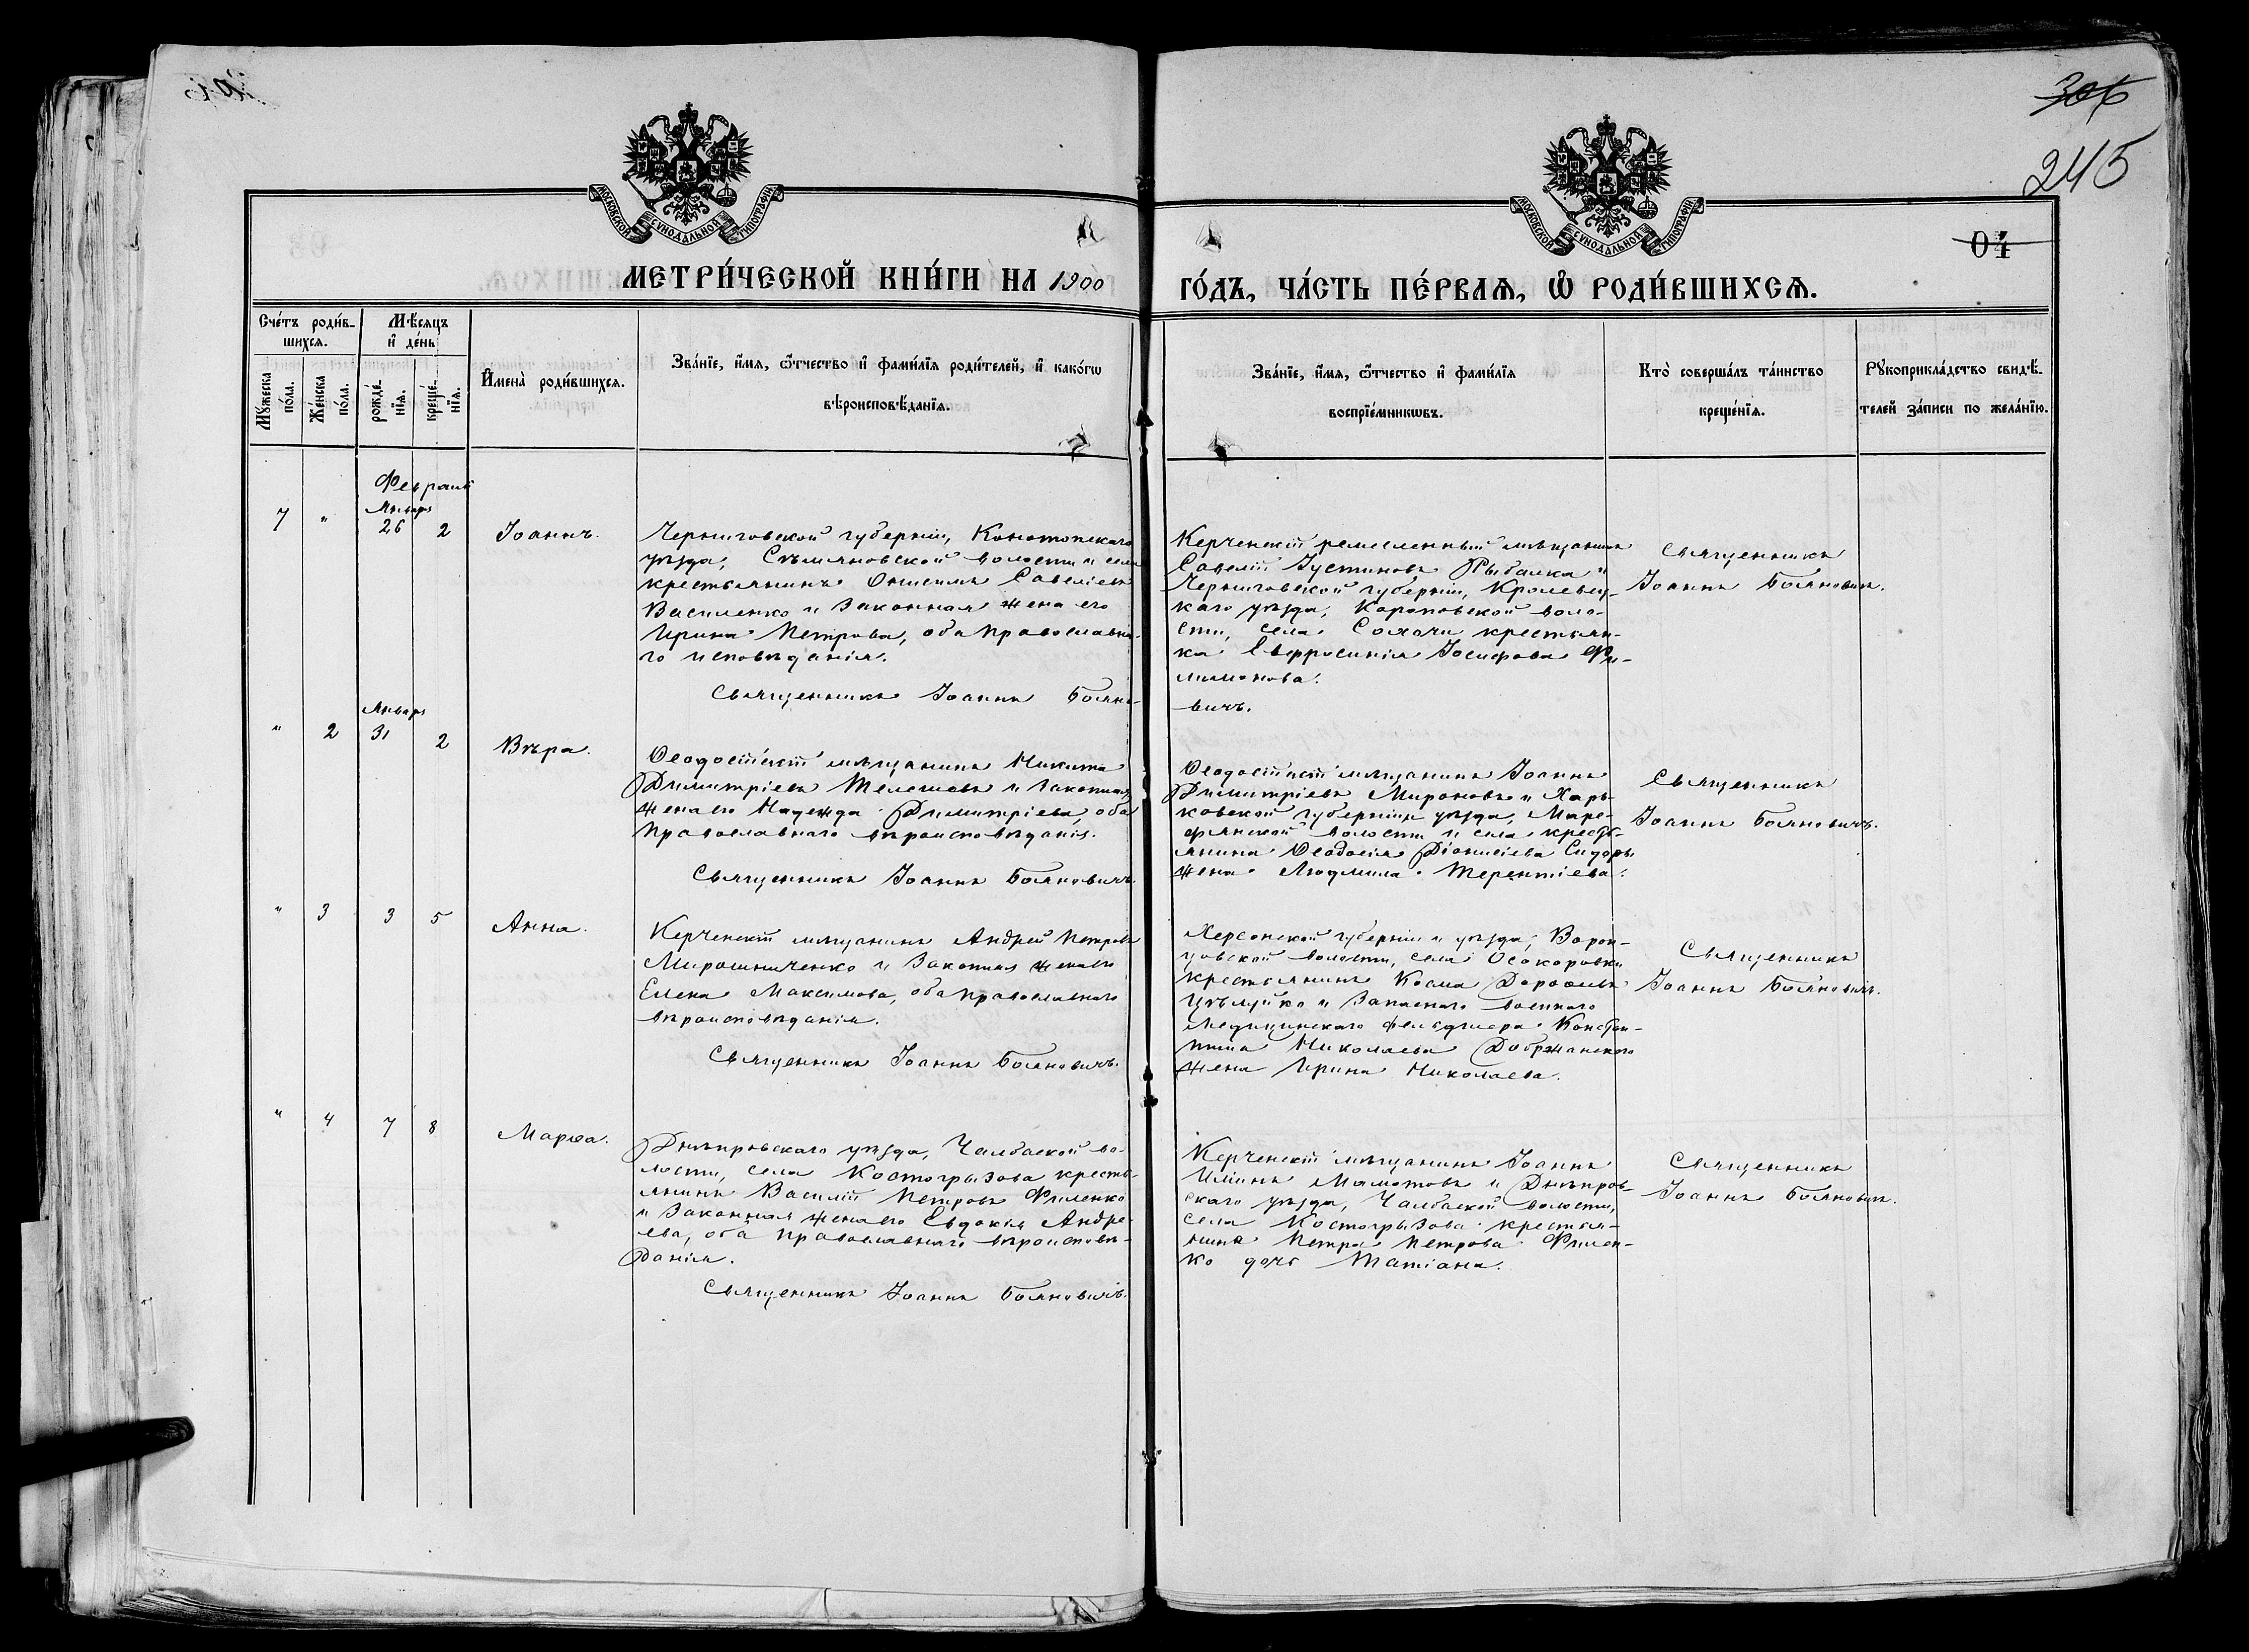 306
245
04
МОСКОВСКОЙ СУНОДАЛЬНОЙ ТИПОГРАФІИ
МОСКОВСКОЙ СУНОДАЛЬНОЙ ТИПОГРАФІИ
МЕТРИ́ЧЕСКОЙ КНИ́ГИ НА 1900
ГО́ДЪ, ЧА́СТЬ ПЕ́РВАЯ, Ѡ РОДИ́ВШИХСЯ.
Сче́тъ роди́в-
шихся.
Мѣ́сяцъ
и де́нь
Му́жеска
по́ла.
Же́нска
по́ла.
рожде́-
нїя.
креще́-
нїя.
Имена̀ роди́вшихся.
Зва́нїе, и́мя, ѻ́тчество и фами́лїя роди́телей, и како́гѡ
вѣроисповѣ́данїя.
Зва́нїе, и́мя, ѻ́тчество и фами́лїя
воспрїе́мникѡвъ.
Кто̀ соверша́лъ та́инство
креще́нїя.
Рукоприкла́дство свидѣ́-
телей за́писи по жела́нїю.
Февраль
Январь
7 " 26 2 Іоаннъ.
Черниговской губерніи, Конотопскаго
уѣзда, волости и села
крестьянинъ Онисимъ Савеліевъ
Василенко и законная жена его
Ирина Петрова, оба православна-
го исповѣданія.
Священникъ Іоаннъ Бояно-
вичъ.
Керченскій ремесленный мѣщанинъ
Савелій Іустиновъ Рыбалка и
Черниговской губерніи, Кролевец-
каго уѣзда, Короповской воло-
сти, села крестьян-
ка Евфросинія Іосифова Фи-
лимонова.
Священникъ
Іоаннъ Бояновичъ.
Январь
" 2 31 2 Вѣра.
Ѳеодосійскій мѣщанинъ Никита
Димитріевъ Телешовъ и законная
жена его Надежда Димитріева, оба
православнаго вѣроисповѣданія.
Священникъ Іоаннъ Бояновичъ.
Ѳеодосійскій мѣщанинъ Іоаннъ
Димитріевъ Мироновъ и Харь-
ковской губерніи и уѣзда, Мере-
фянской волости и села кресть-
янина Ѳеодосія Діонисіева
жена Людмила Терентіева.
Священникъ
Іоаннъ Бояновичъ.
" 3 3 5 Анна.
Керченскій мѣщанинъ Андрей Петровъ
Мирошниченко и законная жена его
Елена Максимова, оба православнаго
вѣроисповѣданія.
Священникъ Іоаннъ Бояновичъ.
Херсонской губерніи и уѣзда, Ворон-
цовской волости, села Осокоровки
крестьянинъ Косма Дороѳеевъ
и запаснаго военнаго
медицинскаго фельдшера Констан-
тина Николаева Добржанскаго
жена Ирина Николаева.
Священникъ
Іоаннъ Бояновичъ.
" 4 7 8 Марѳа.
Днѣпровскаго уѣзда, Чалбаской во-
лости, села Костогрызова кресть-
янинъ Василій Петровъ Филенко
и законная жена его Евдокія Андре-
ева, оба православнаго вѣроисповѣ-
данія.
Священникъ Іоаннъ Бояновичъ.
Керченскій мѣщанинъ Іоаннъ
Ильинъ Мамотовъ и Днѣпров-
скаго уѣзда, Чалбаской волости,
села Костогрызова крестья-
нина Петра Петрова Филен-
ко дочь Татіана.
Священникъ
Іоаннъ Бояновичъ.